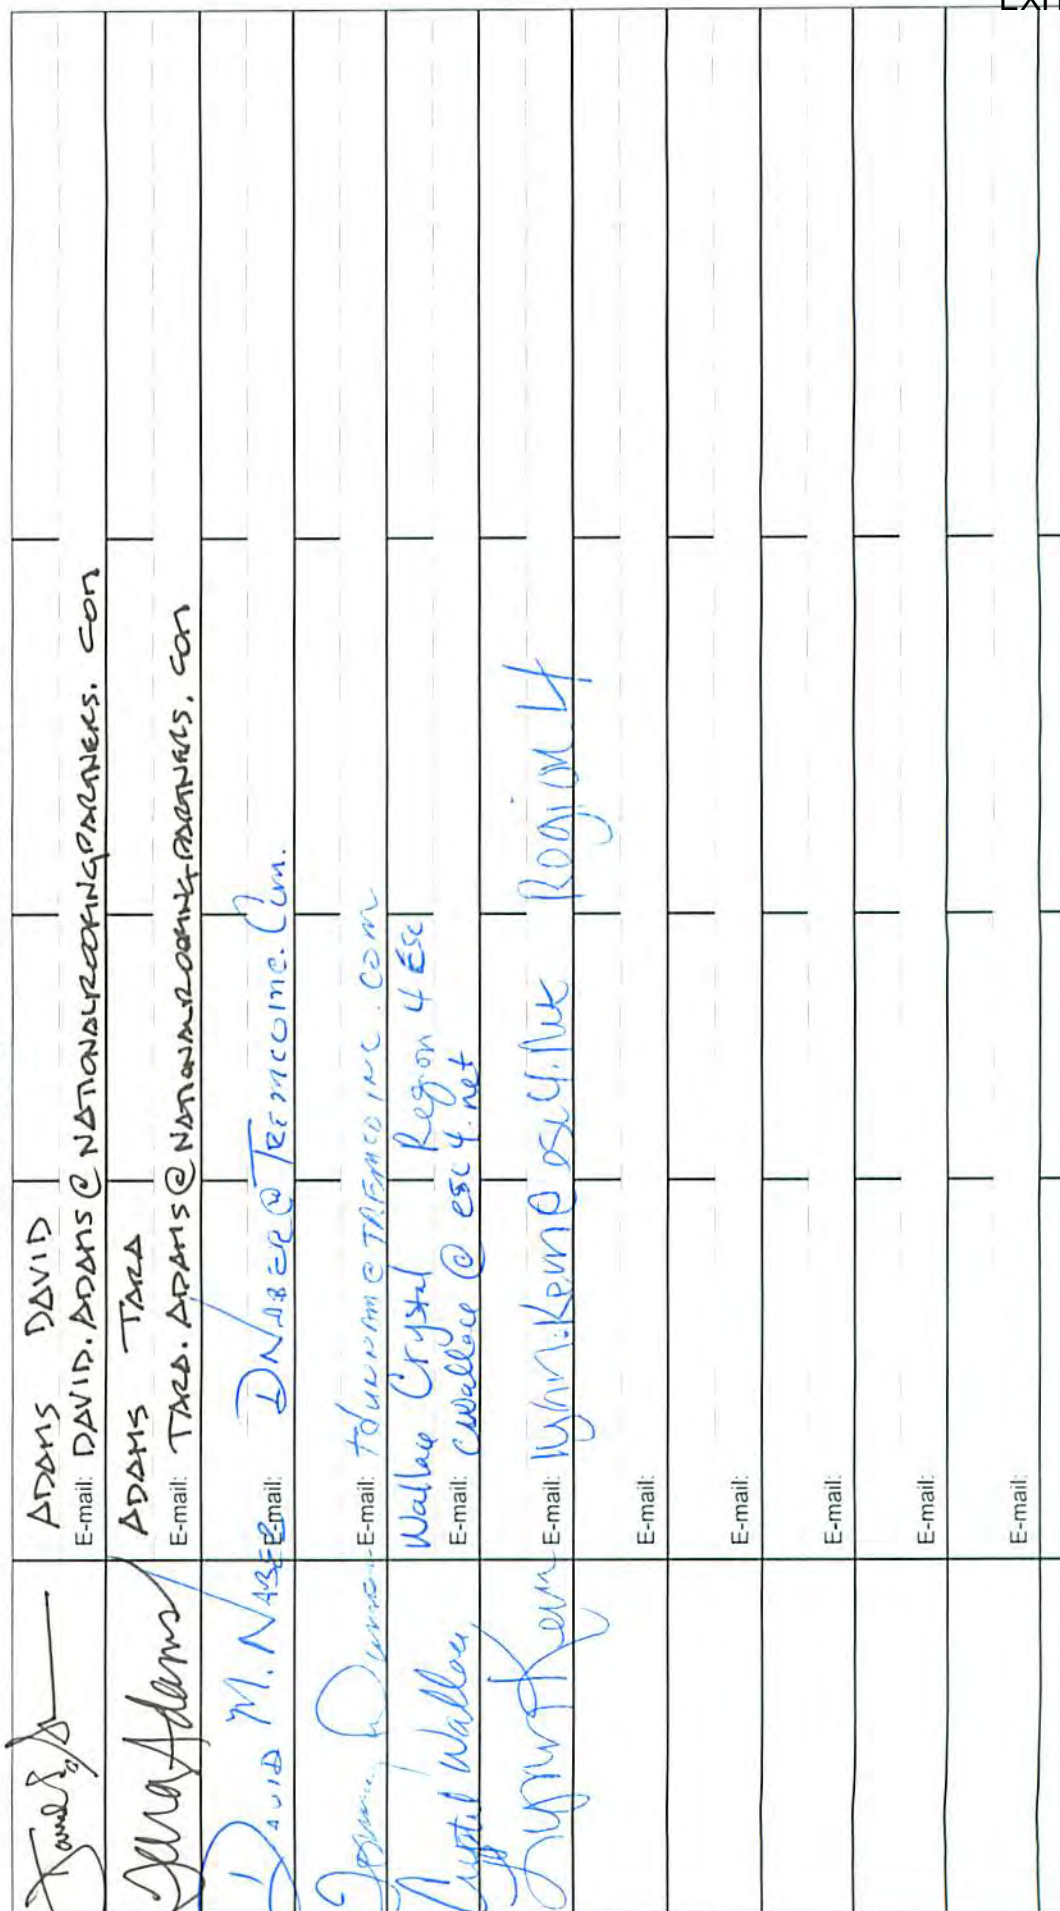 EXH
ADAMS DAVID
E-mail: DAVID.ADAMS@NATIONALROOFINGPARTNERS.COM
Tara Adams
ADAMS TARA
E-mail: TARA.ADAMS@NATIONALROOFINGPARTNERS.COM
DAVID M. NABER
E-mail: DNABER@TREMCOINC.COM.
E-mail: tdunnam@TREMCOINC.COM
Crystal Wallace
Wallace Crystal Region 4 ESC
E-mail: cwallace@esc4.net
Lynn Kem
E-mail: lynn.kem@esc4.net Region 4
E-mail:
E-mail:
E-mail:
E-mail:
E-mail: